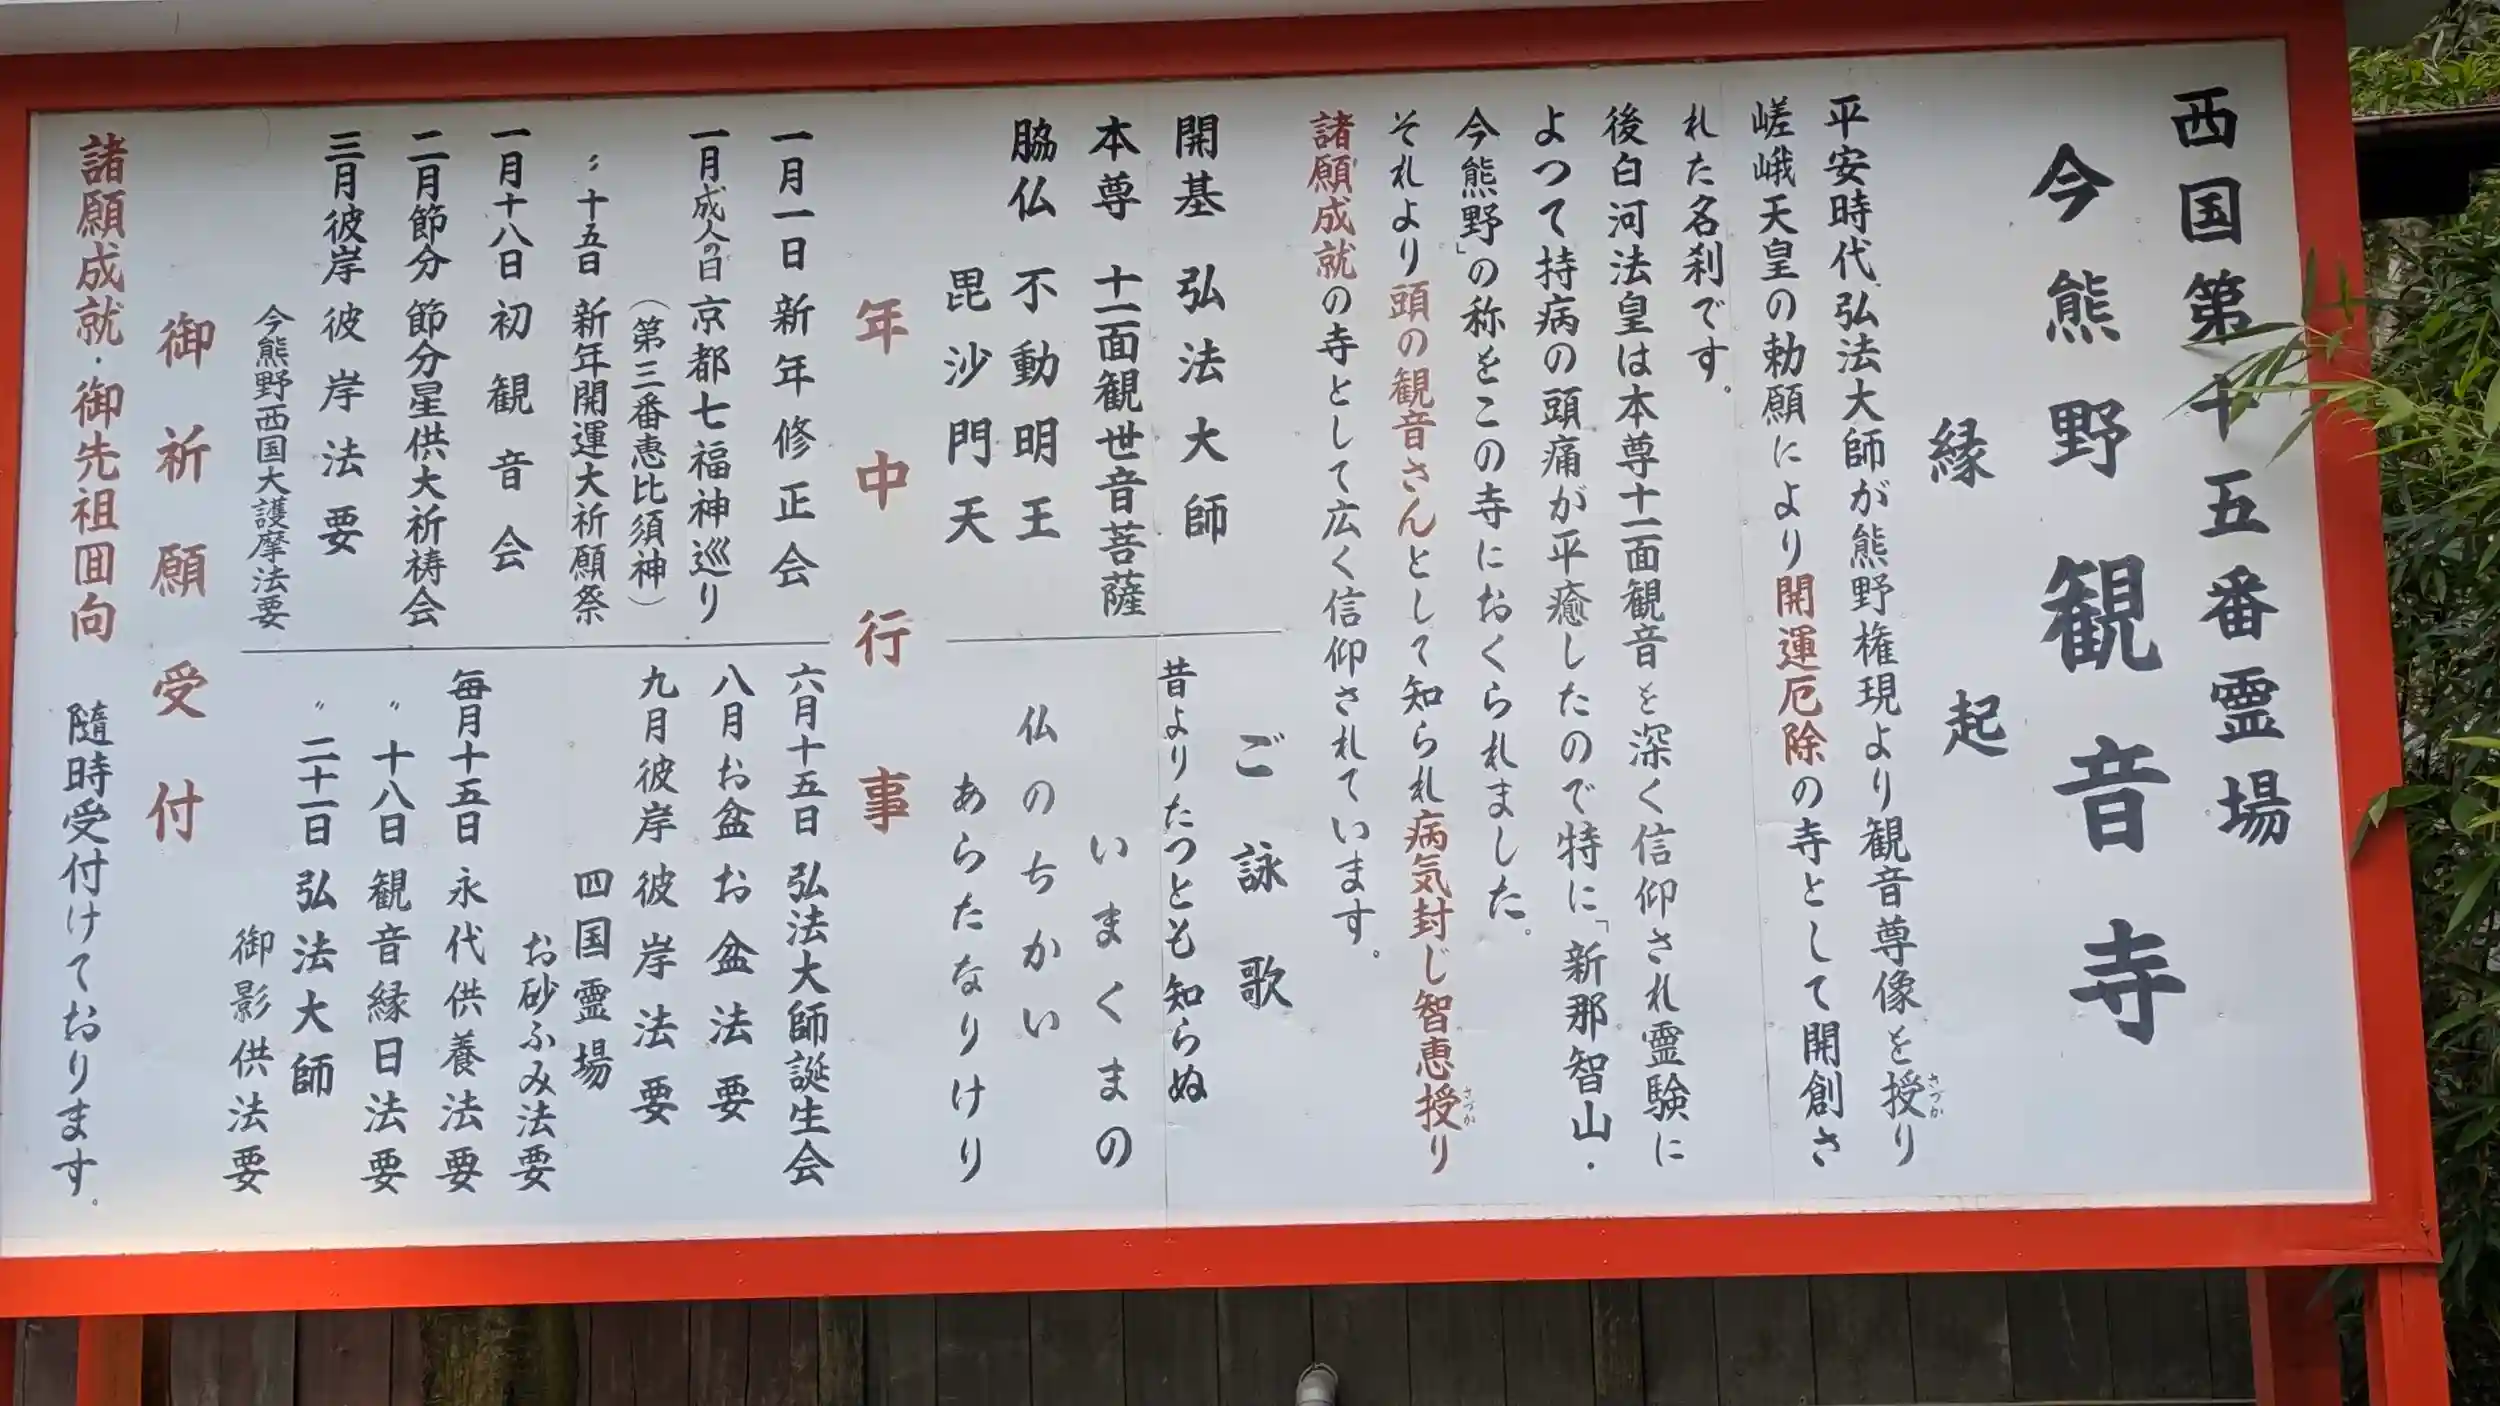 西国第十五番霊場
今熊野観音寺
縁起
平安時代、弘法大師が熊野権現より観音尊像を授り
さづか
嵯峨天皇の勅願により開運厄除の寺として開創さ
れた名刹です。
後白河法皇は本尊十一面観音を深く信仰され霊験に
よつて持病の頭痛が平癒したので特に「新那智山・
今熊野」の称をこの寺におくられました。
それより頭の観音さんとして知られ病気封じ智恵授り
さづか
諸願成就の寺として広く信仰されています。
開基 弘法大師
本尊 十一面観世音菩薩
脇仏 不動明王
毘沙門天
ご詠歌
昔よりたつとも知らぬ
いまくまの
仏のちかい
あらたなりけり
年中行事
一月一日 新年修正会
一月成人の日 京都七福神巡り
(第三番恵比須神)
〃十五日 新年開運大祈願祭
一月十八日 初観音会
二月節分 節分星供大祈祷会
三月彼岸 彼岸法要
今熊野西国大護摩法要
六月十五日 弘法大師誕生会
八月お盆 お盆法要
九月彼岸 彼岸法要
四国霊場
お砂ふみ法要
毎月十五日 永代供養法要
〃十八日 観音縁日法要
〃二十一日 弘法大師
御影供法要
御祈願受付
諸願成就・御先祖回向 随時受付けております。